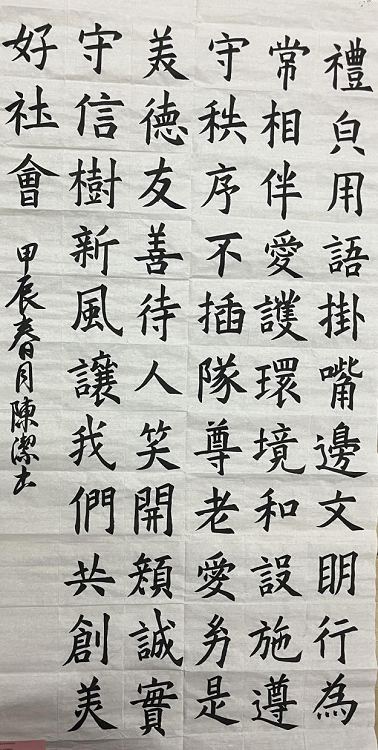 禮皃用語掛嘴邊文眀行為
常相伴愛護環境和設施遵
守秩序不插隊尊老愛幼是
美德友善待人笑開顏誠實
守信樹新風讓我們共創美
好社會
甲辰春月陳潔书